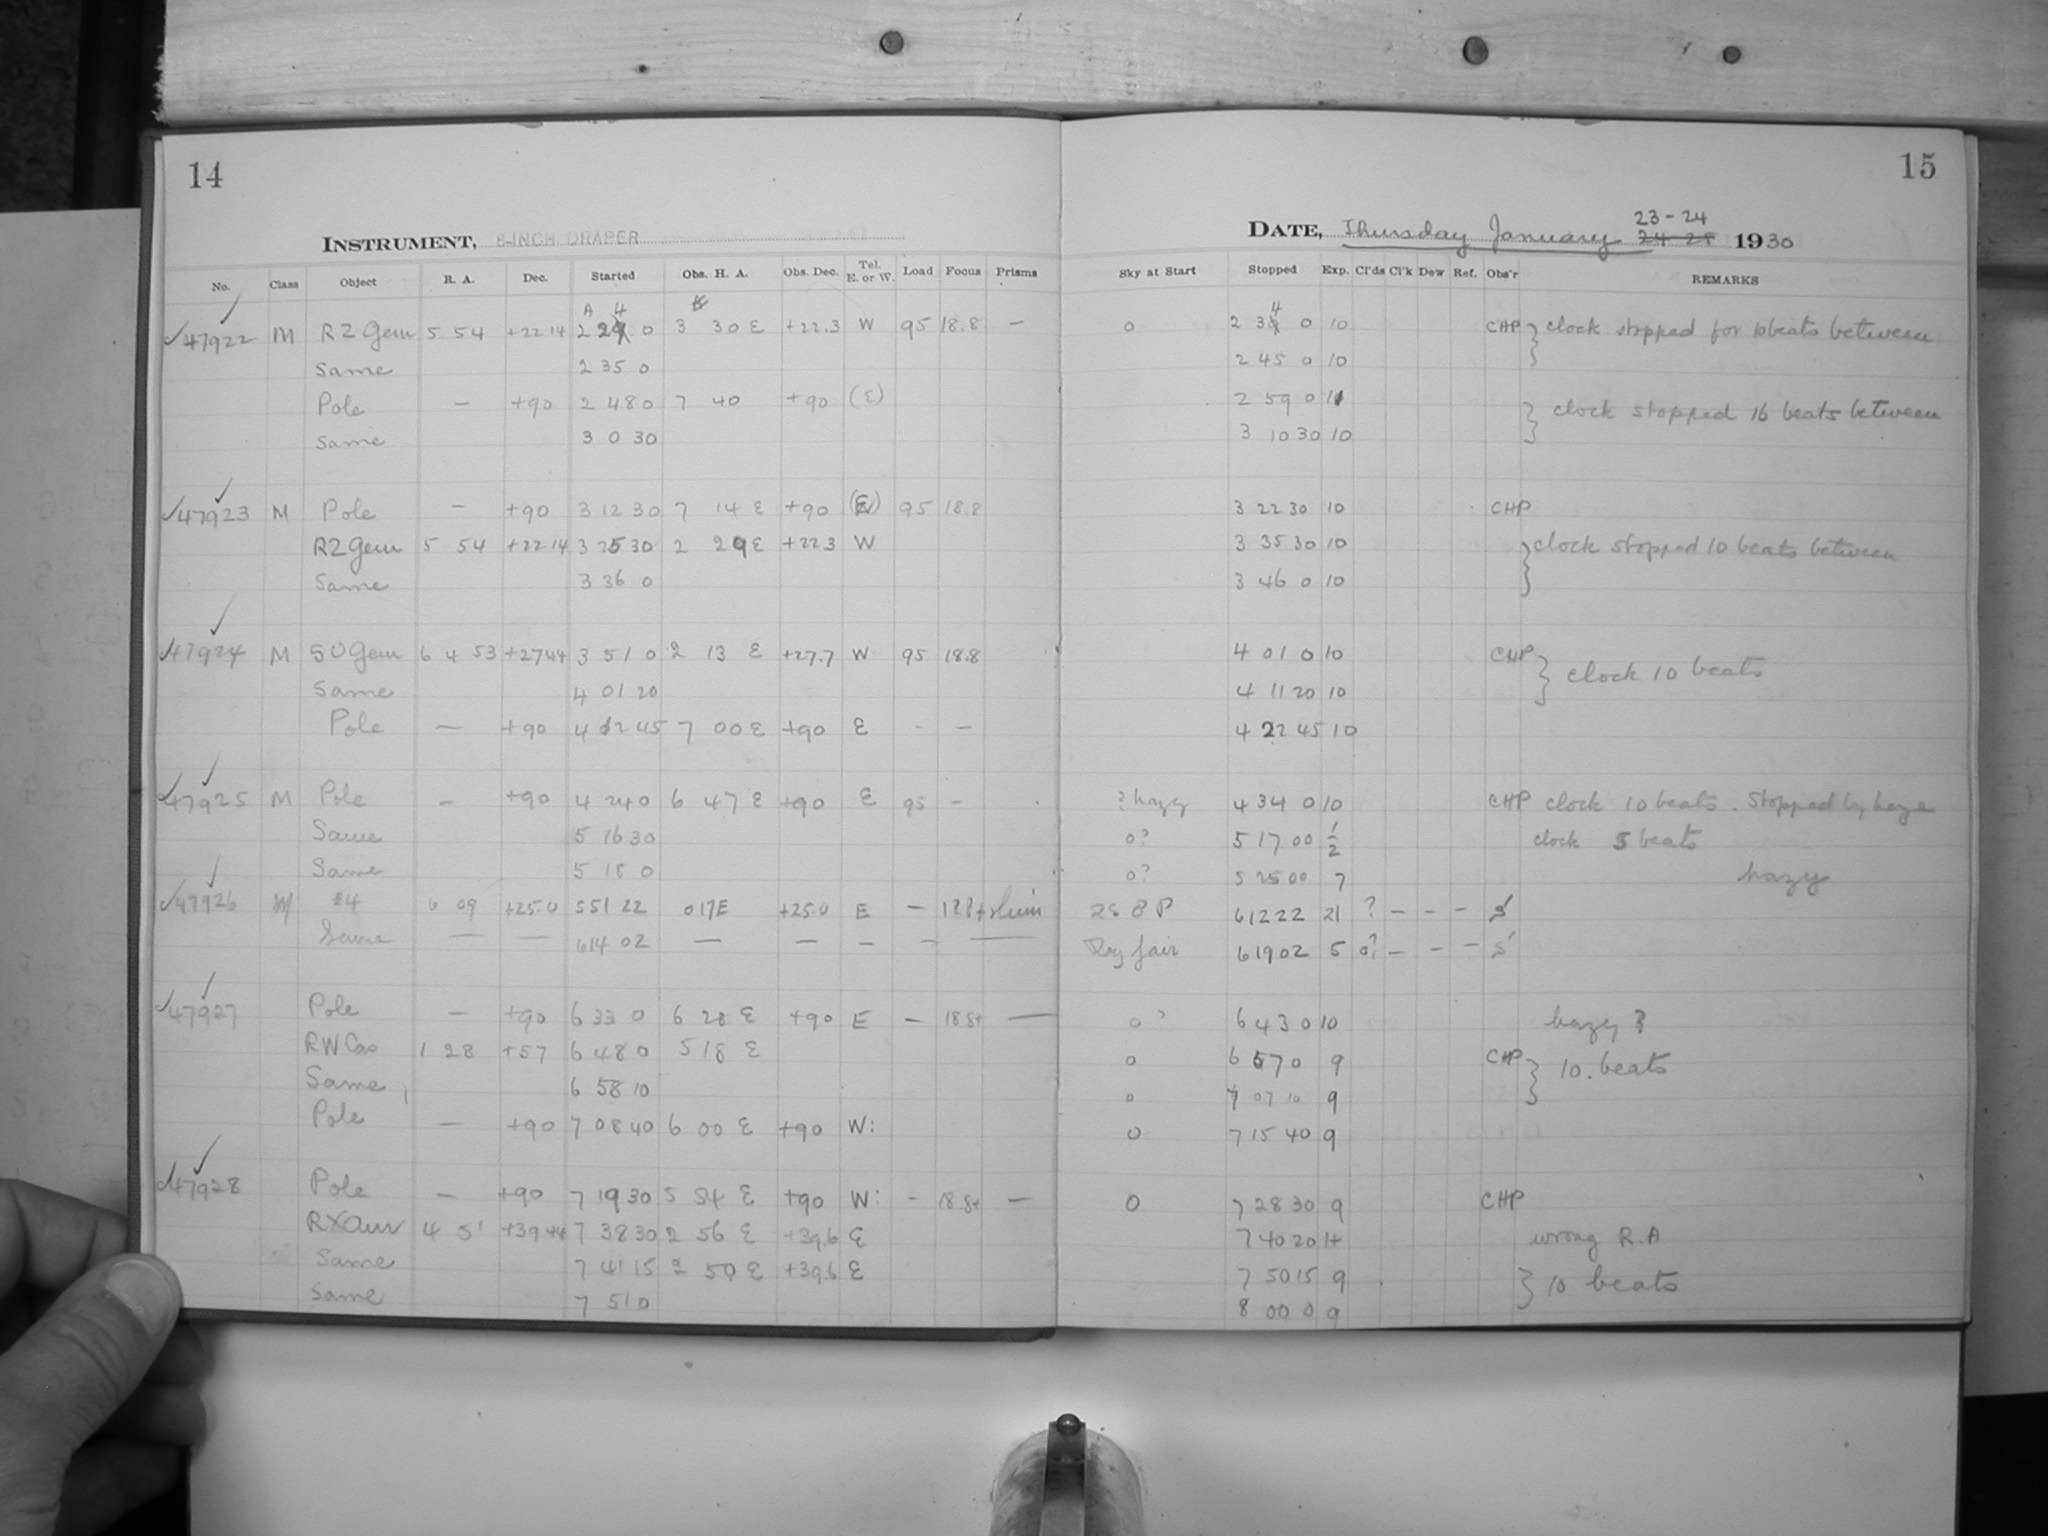 14
INSTRUMENT, 8-INCH DRAPER
No. Class Object R. A. Dec. Started Obs. H. A. Obs. Dec. Tel. E. or W. Load Focus Prisms
47922 M RZ Gem 5 54 +22 14 2 24 0 3 30 E +22.3 W 95 18.8 —
Same 2 35 0
Pole — +90 2 48 0 7 40 +90 (E)
Same 3 0 30
47923 M Pole — +90 3 12 30 7 14 E +90 (E) 95 18.8
RZ Gem 5 54 +22 14 3 25 30 2 29 E +22.3 W
Same 3 36 0
47924 M SU Gem 6 4 53 +27 44 3 51 0 2 13 E +27.7 W 95 18.8
Same 4 01 20
Pole — +90 4 12 45 7 00 E +90 E - —
47925 M Pole — +90 4 24 0 6 47 E +90 E 95 -
Same 5 16 30
Same 5 18 0
47926 4 6 09 +25.0 5 51 22 0 17 E +25.0 E —
Same — — 6 14 02 — — — — —
47927 Pole — +90 6 33 0 6 28 E +90 E — 18.8+ —
RW Cas 1 28 +57 6 48 0 5 18 E
Same 6 58 10
Pole — +90 7 08 40 6 00 E +90 W:
47928 Pole — +90 7 19 30 5 54 E +90 W: - 18.8+ —
RX Aur 4 51 +39 44 7 38 30 2 56 E +39.6 E
Same 7 41 15 2 50 E +39.6 E
Same 7 51 0
15
DATE, Thursday January 23-24 24 25 1930
Sky at Start Stopped Exp. Cl'ds Cl'k Dew Ref. Obs'r REMARKS
0 2 34 0 10 CHP clock stopped for 10 beats between
2 45 0 10
2 59 0 11 clock stopped 16 beats between
3 10 30 10
3 22 30 10 CHP
3 35 30 10 clock stopped 10 beats between
3 46 0 10
4 01 0 10 CHP clock 10 beats
4 11 20 10
4 22 45 10
? hazy 4 34 0 10 CHP clock 10 beats. Stopped by haze
0? 5 17 00 1/2 clock 5 beats
0? 5 25 00 7 hazy
6 12 22 21 ? — — — S
fair 6 19 02 5 0? — — — S
0 ? 6 43 0 10 hazy ?
0 6 57 0 9 CHP 10 beats
0 7 07 10 9
0 7 15 40 9
0 7 28 30 9 CHP
7 40 20 1+ wrong R.A
7 50 15 9 10 beats
8 00 0 9